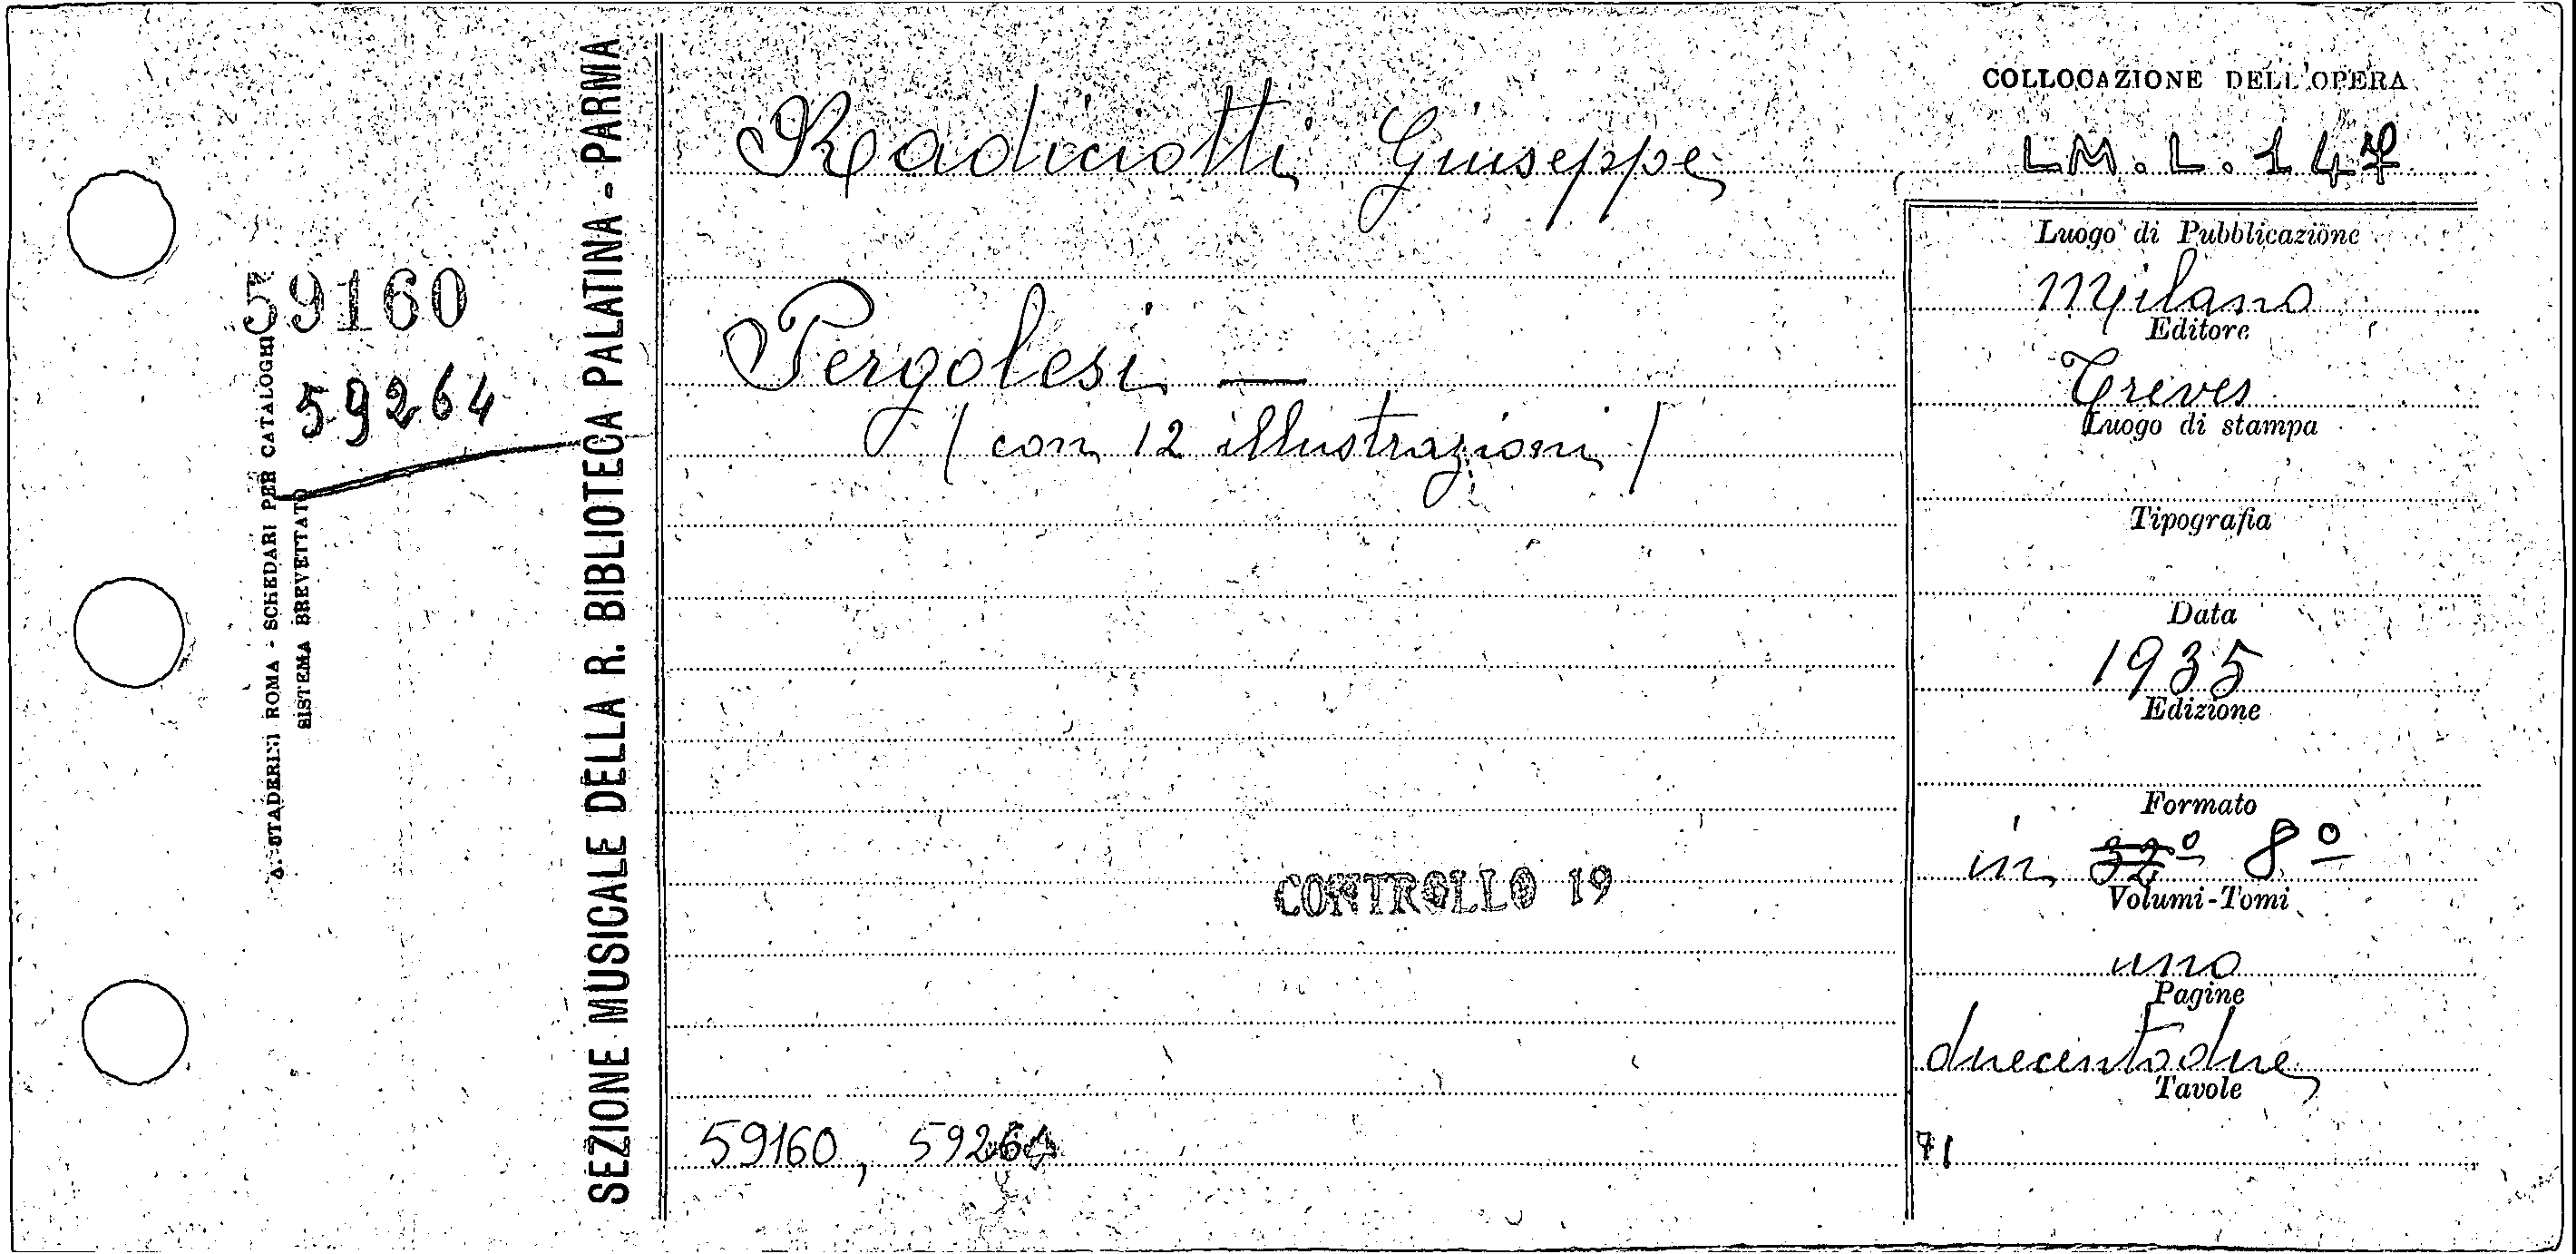 SEZIONE MUSICALE DELLA R. BIBLIOTECA PALATINA - PARMA
A. STADERINI ROMA - SCHEDARI PER CATALOGHI
SISTEMA BREVETTATO
59160
59264
Radiciotti Giuseppe
Pergolesi —
(con 12 illustrazioni)
CONTROLLO 19
59160, 59264
COLLOCAZIONE DELL'OPERA
LM. L. 147
Luogo di Pubblicazione
Milano
Editore
Treves
Luogo di stampa
Tipografia
Data
1935
Edizione
Formato
in 32º 8º
Volumi-Tomi
uno
Pagine
duecentodue
Tavole
71